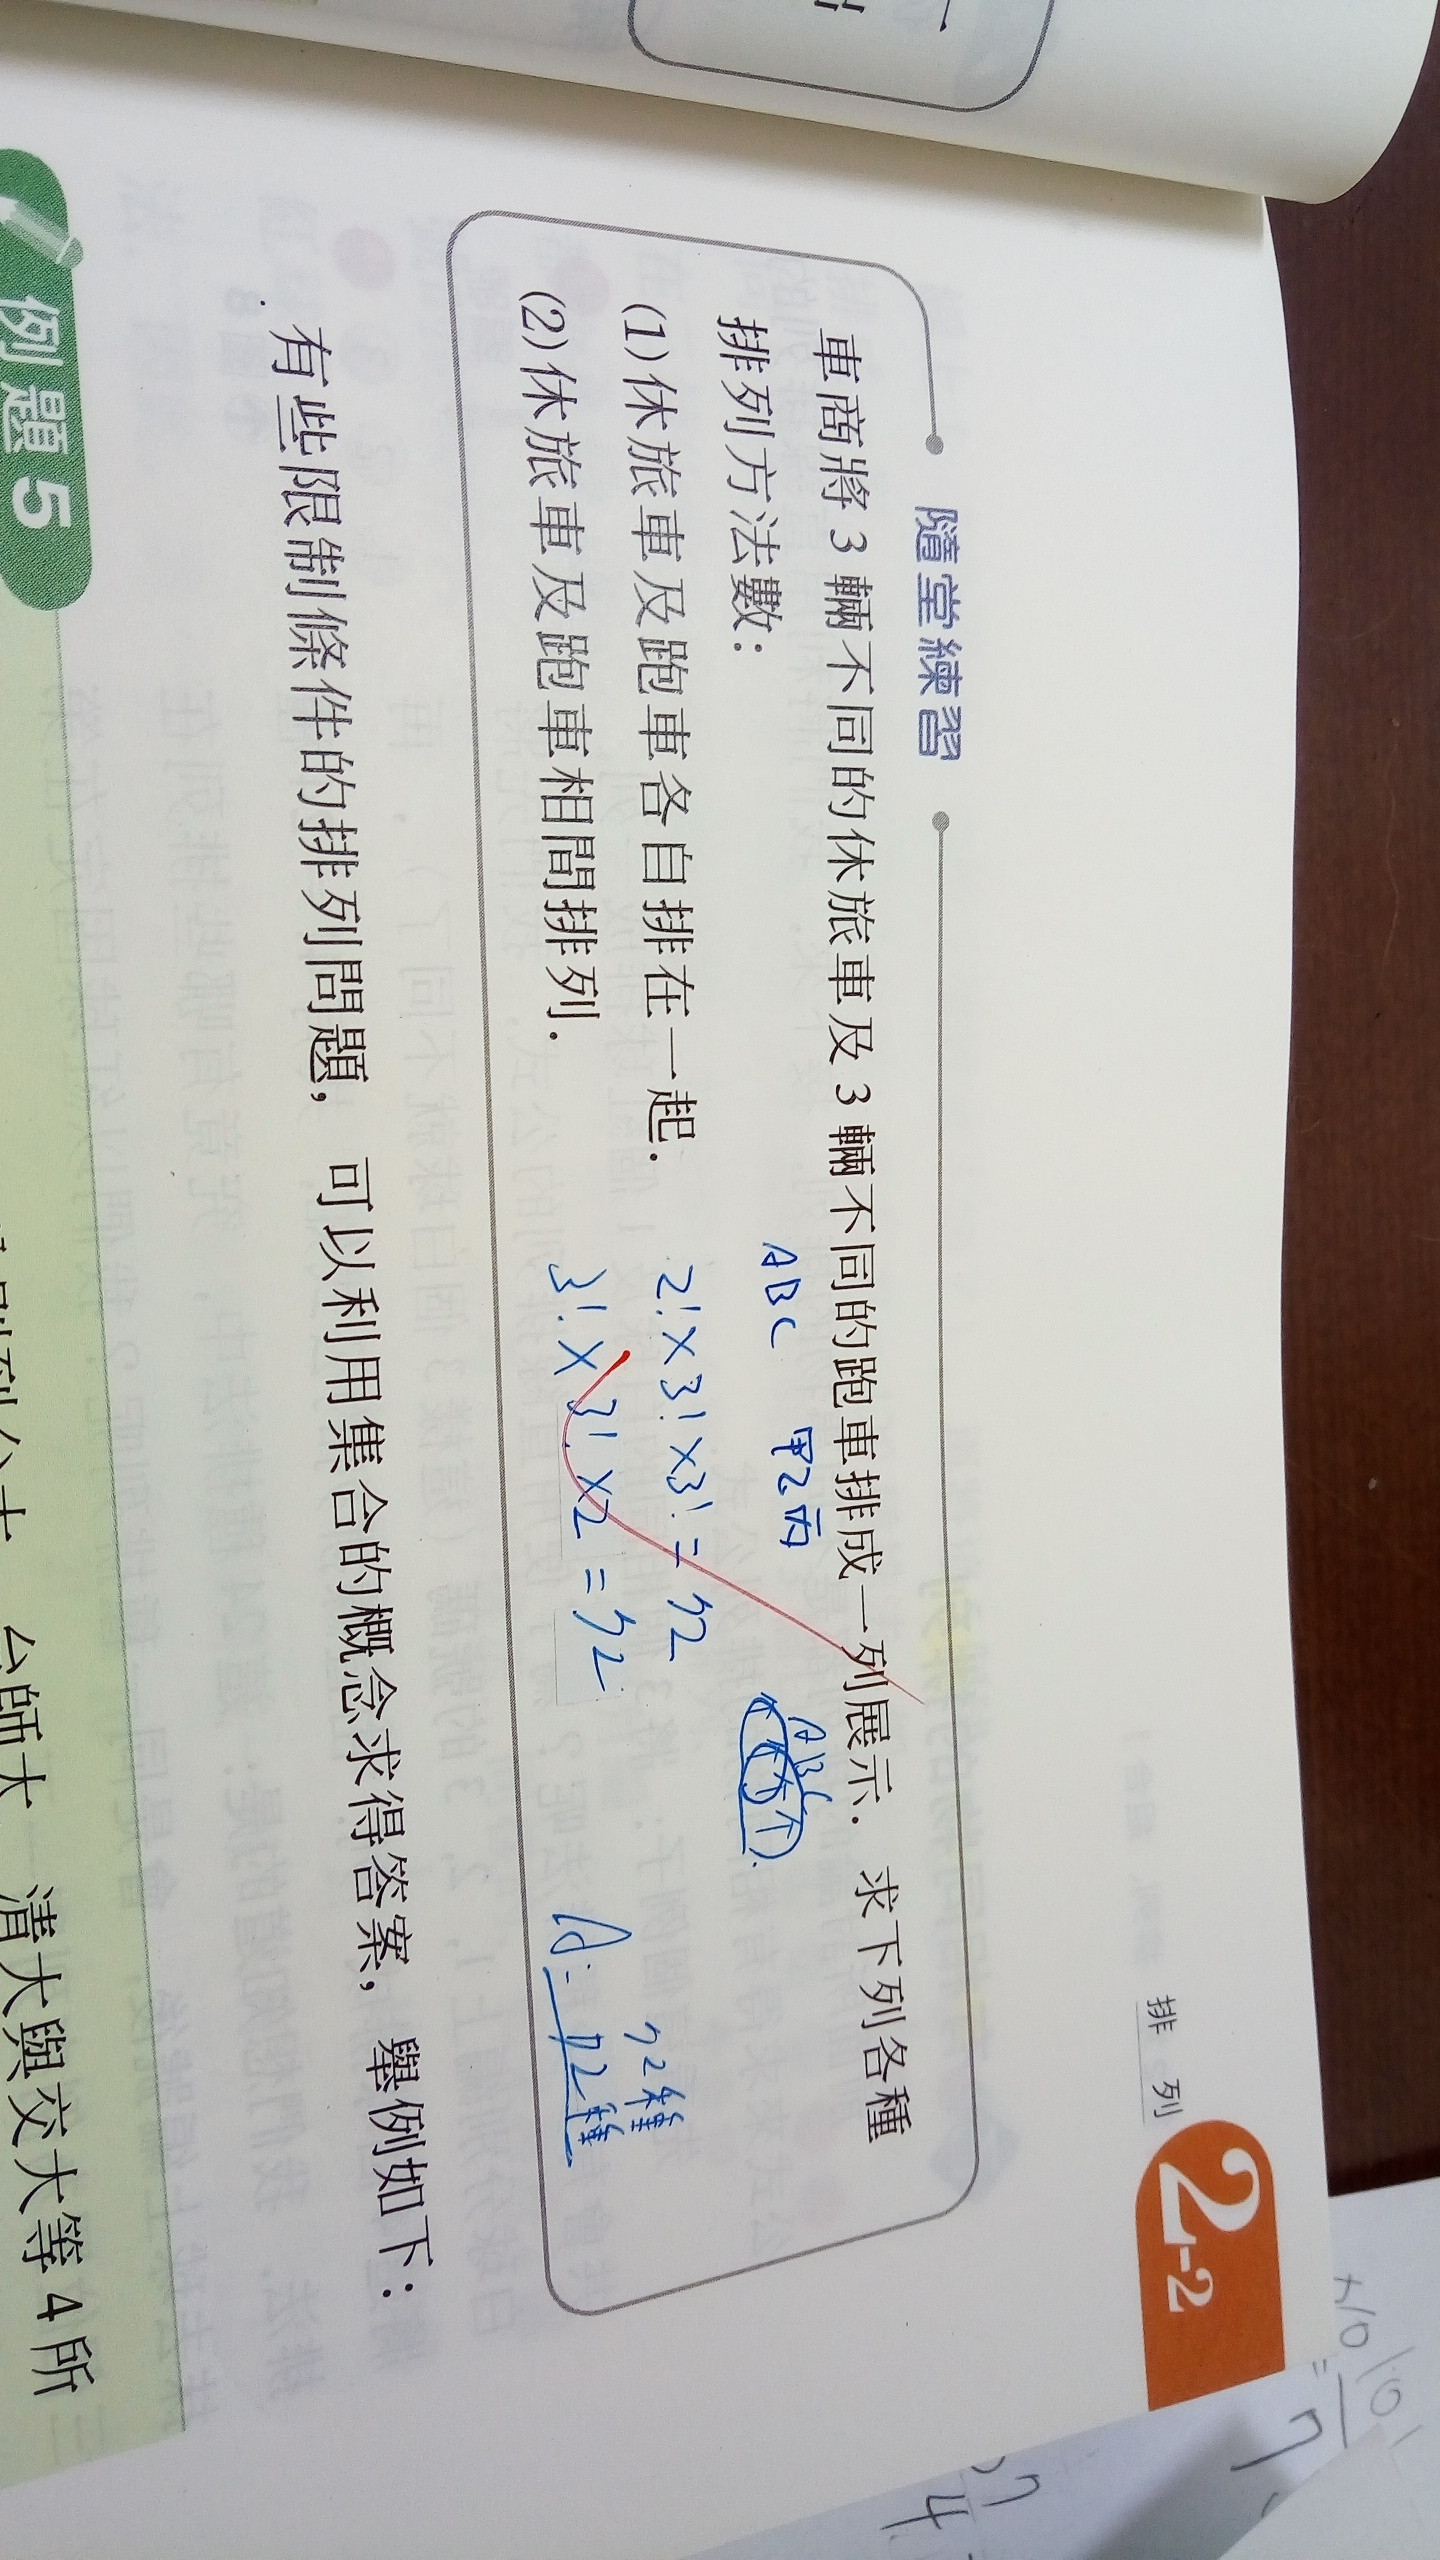 排 列
2-2
隨堂練習
車商將 3 輛不同的休旅車及 3 輛不同的跑車排成一列展示. 求下列各種
排列方法數：
ABC 甲乙丙
ABC
(1)休旅車及跑車各自排在一起.
2! × 3! × 3! = 72
72種
(2)休旅車及跑車相間排列.
3! × 3! × 2 = 72
A: 72種
有些限制條件的排列問題， 可以利用集合的概念求得答案， 舉例如下：
例題 5
台師大 清大與交大等 4 所